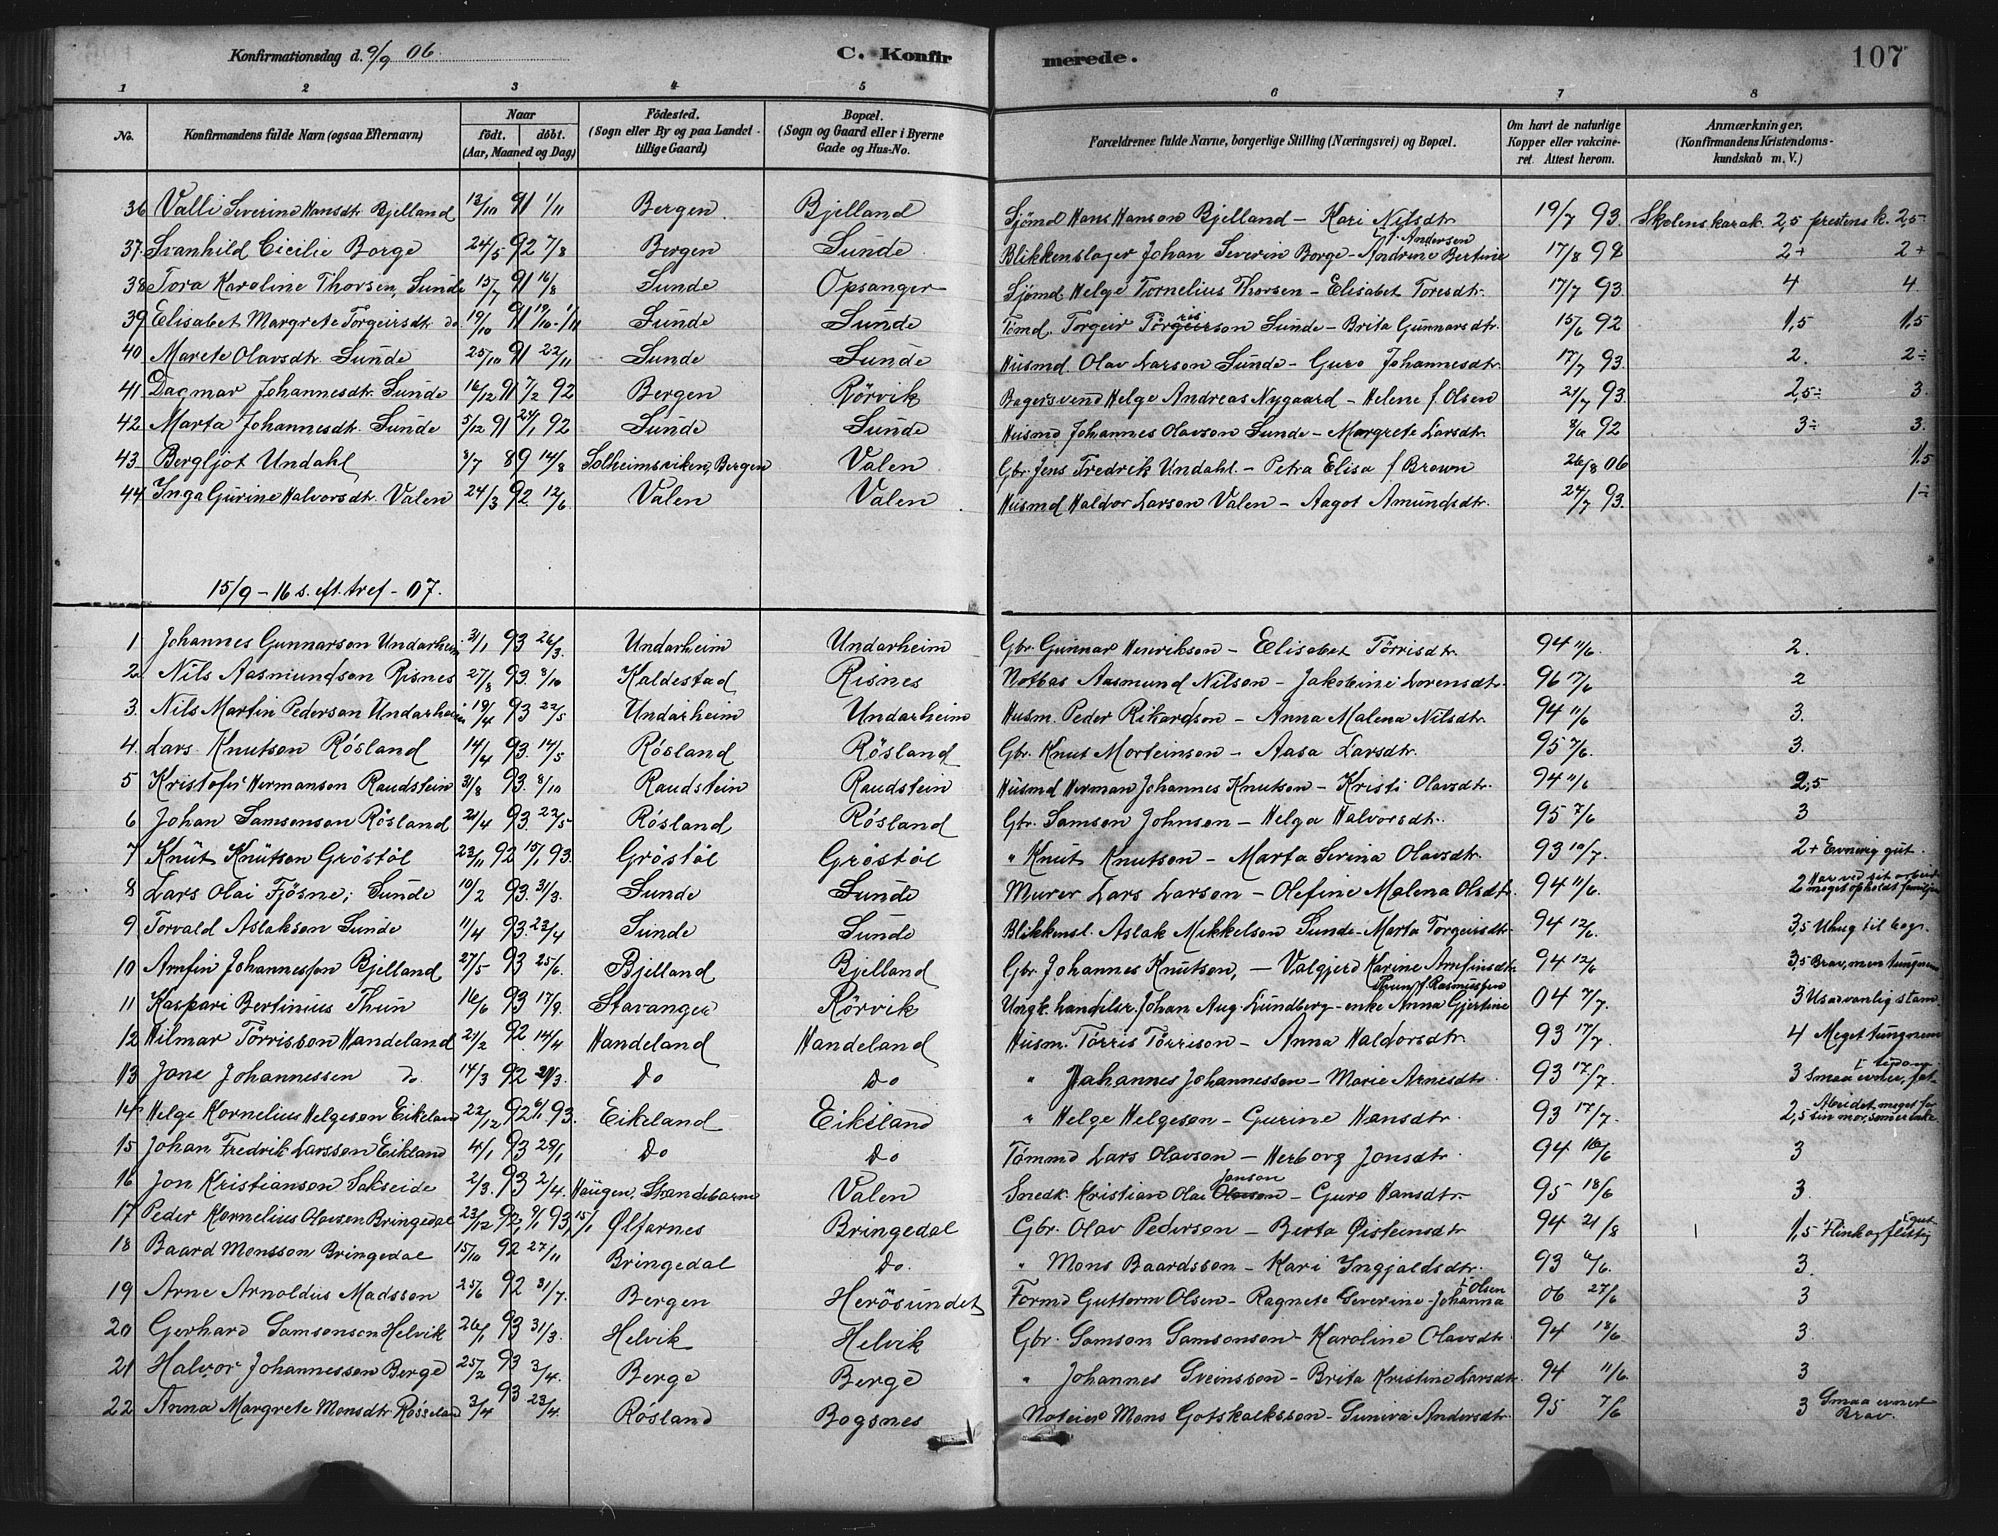 Konfirmationsdag d. 9/9 06. C. Konfirmerede. 107
1 2 3 4 5 6 7 8
No. Konfirmandens fulde Navn (ogsaa Efternavn) Naar født. døbt. (Aar, Maaned og Dag) Fødested. (Sogn eller By og paa Landet tillige Gaard) Bopæl. (Sogn og Gaard eller i Byerne Gade og Hus-No. Forældrenes fulde Navne, borgerlige Stilling (Næringsvei) og Bopæl. Om havt de naturlige Kopper eller vakcineret. Attest herom. Anmærkninger. (Konfirmandens Kristendomskundskab m. V.)
36 Valli Severine Hansdtr Bjelland 13/10 91 1/11 Bergen Bjelland Sjømd Hans Hanson Bjelland - Kari Nilsdtr 19/7 93. Skolens karak. 2,5 prestens k. 2,5÷
37. Svanhild Cicilie Borge 24/5 92 7/8 Bergen Sunde Blikkenslager Johan Severin Borge - Andrine Bertine f. Andersen 17/8 92 2+ 2+
38 Tora Karoline Thorsen, Sunde 15/7 91 16/8 Sunde Opsanger Sjømd Helge Tornelius Thorsen - Elisabet Toresdtr. 17/7 93. 4 4.
39 Elisabet Margrete Torgeirsdtr do 19/10 91 19/10 - 1/11 Sunde Sunde Tømd. Torgeir Torgeirson Sunde - Brita Gunnarsdtr. 15/6 92 1,5 1,5
40 Marete Olavsdtr. Sunde 25/10 91 22/11 Sunde Sunde Husmd. Olav Larson Sunde - Guro Johannesdtr. 17/7 93. 2. 2÷
41 Dagmar Johannesdtr. Sunde 16/12 91 7/2 92 Bergen Rørvik Bagersvend Helge Andreas Nygaard - Helene f. Olsen 21/7 93. 2,5÷ 3.
42. Marta Johannesdtr. Sunde 5/12 91 24/1 92 Sunde Sunde Husmd Johannes Olavson Sunde - Margrete Larsdtr. 8/6 92 3÷ 3.
43 Bergljot Undahl 3/7 89 14/8 Solheimsviken, Bergen Valen Gbr. Jens Fredrik Undahl. - Petra Elisa f Brown 26/8 06 1.5
44 Inga Gurine Halvorsdtr. Valen 24/3 92. 12/6 Valen Valen Husmd Haldor Larson Valen - Aagot Amundsdtr. 24/7 93. 1÷
15/9 - 16 s. eft. tref - 07.
1 Johannes Gunnarson Undarheim 31/1 93 26/3 Undarheim Undarheim Gbr. Gunnar Henrikson - Elisabet Tørrisdtr. 94 11/6. 2.
2 Nils Aasmundson Risnes 27/8 93. 8/10 Kaldestad Risnes Notbas Aasmund Nilson - Jakobine Lorensdtr. 96 17/6 2
3. Nils Martin Pederson Undarheim 19/4 93 22/5 Undarheim Undarheim Husm. Peder Rikardson - Anna Malena Nilsdtr. 94 11/6 3.
4. Lars Knutson Røsland 14/4 93. 14/5 Røsland Røsland Gbr. Knut Morteinson - Aasa Larsdtr. 95 7/6 3.
5 Kristofer Hermanson Raudstein 31/8 93. 8/10 Raudstein Raudstein Husmd Herman Johannes Knutson - Kristi Olavsdtr. 94 11/6 2,5
6 Johan Samsonson Røsland 21/4 93. 22/5 Røsland Røsland Gbr. Samson Johnson - Helga Halvorsdtr. 95 7/6 3
7 Knut Knutson Grøstøl 23/11 92 15/1 93. Grøstøl Grøstøl " Knut Knutson - Marta Serina Olavsdtr. 93 10/7. 2+ Evnerig gut.
8 Lars Olai Fjøsne; Sunde 10/2 93. 31/3. Sunde Sunde Murer Lars Larson - Olefine Malena Olsdtr. 94 11/6. 2 Har ved sit arbeide meget opholdt familjen
9. Torvald Aslakson Sunde 11/4 93. 23/4 Sunde Sunde Blikkensl. Aslak Mikkelson Sunde - Marta Torgeirsdtr 94 12/6. 3,5 Uhug til bogs.
10 Arnfin Johannesson Bjelland 27/5 93 25/6. Bjelland Bjelland Gbr. Johannes Knutson, - Valgjerd Karine Arnfinsdtr 94 12/6 3,5 Brav, men tungnem
11 Kaspari Bertinius Thun 16/6 93 17/9. Stavanger Rørvik Ungk. handelsr. Johan Aug. Lundberg - enke Anna Gjertine Thun f. Rasmussen 04 7/7. 3 Usæ vanlig stam.
12 Hilmar Tørrisson Handeland 21/2 92. 14/4 Handeland Handeland Husm. Tørris Tørrison - Anna Haldorsdtr. 93 17/7. 4 Meget tungnem
13 Jone Johannessen do 14/3 92 21/3. Do Do " Johannes Johannesson - Marie Arnesdtr. 93 17/7. 3 Smaa evner,
14. Helge Kornelius Helgeson Eikeland 22/12 92 6/1 93. Eikeland Eikeland " Helge Helgeson - Gurine Hansdtr. 93 17/7 2,5 Arbeidet meget for sin mor, som er enke.
15 Johan Fredrik Larsson Eikland 4/1 93 29/1 Do Do Tømmd Lars Olavson - Herborg Jonsdtr. 94 16/6 3
16 Jon Kristianson Sakseide 2/3. 93 2/4. Haugen, Strandebarm Valen Snedk. Kristian Olai Olavson Jonson - Guro Hansdtr. 95 18/6 3.
17 Peder Kornelius Olavsen Bringedal 23/12 92 9/1 93, 15/1 Ølfarnes Bringedal Gbr. Olav Pederson - Berta Øisteinsdtr 94 21/8 1,5 Flink og flittig gut
18 Baard Monsson Bringedal 15/10 92 27/11 Bringedal Do. " Mons Baardsson - Kari Ingjaldsdtr. 93 6/6. 3.
19 Arne Arnoldus Madsson 25/6 92 31/7. Bergen Herøsundet Formd Guttorm Olsen - Ragnete Severine Johanna f. Olsen 06 27/6 3
20 Gerhard Samsonson Helvik 26/1 93 31/3. Helvik Helvik Gbr. Samson Samsonson - Karoline Olavsdtr. 94 18/6. 3.
21 Halvor Johannesson Berge 25/2 93 3/4. Berge Berge " Johannes Sveinsson - Brita Kristine Larsdtr. 94 11/6. 3
22 Anna Margrete Monsdtr Røsseland 3/4 93 23/4. Røsland Bogsnes Noteier Mons Gotskalksson - Suniva Andersdtr. 95 7/6 3 Smaa evner Brav.